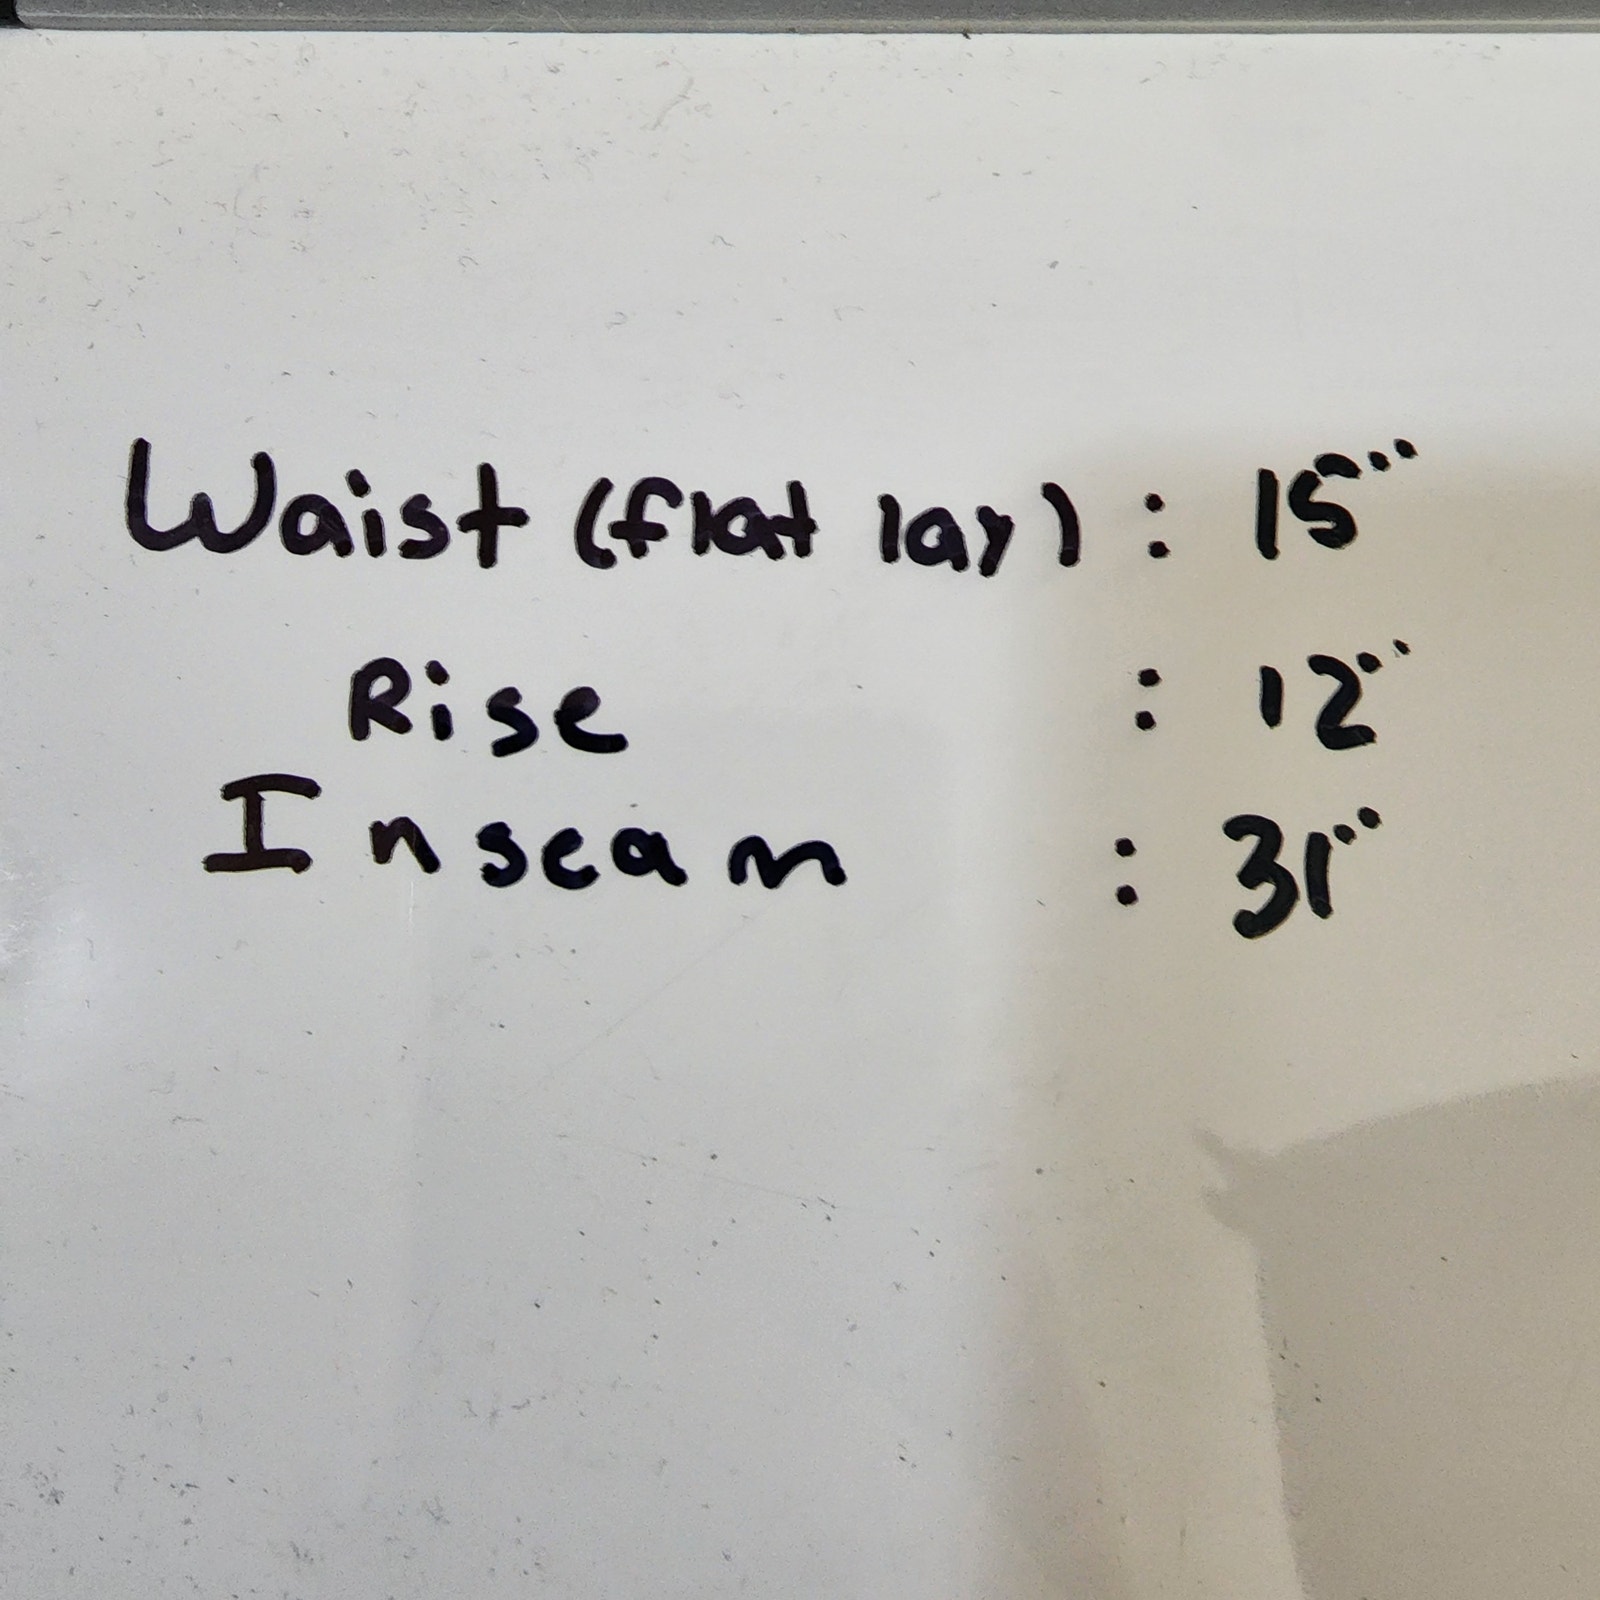 Waist (flat lay) : 15"
Rise : 12"
Inseam : 31"